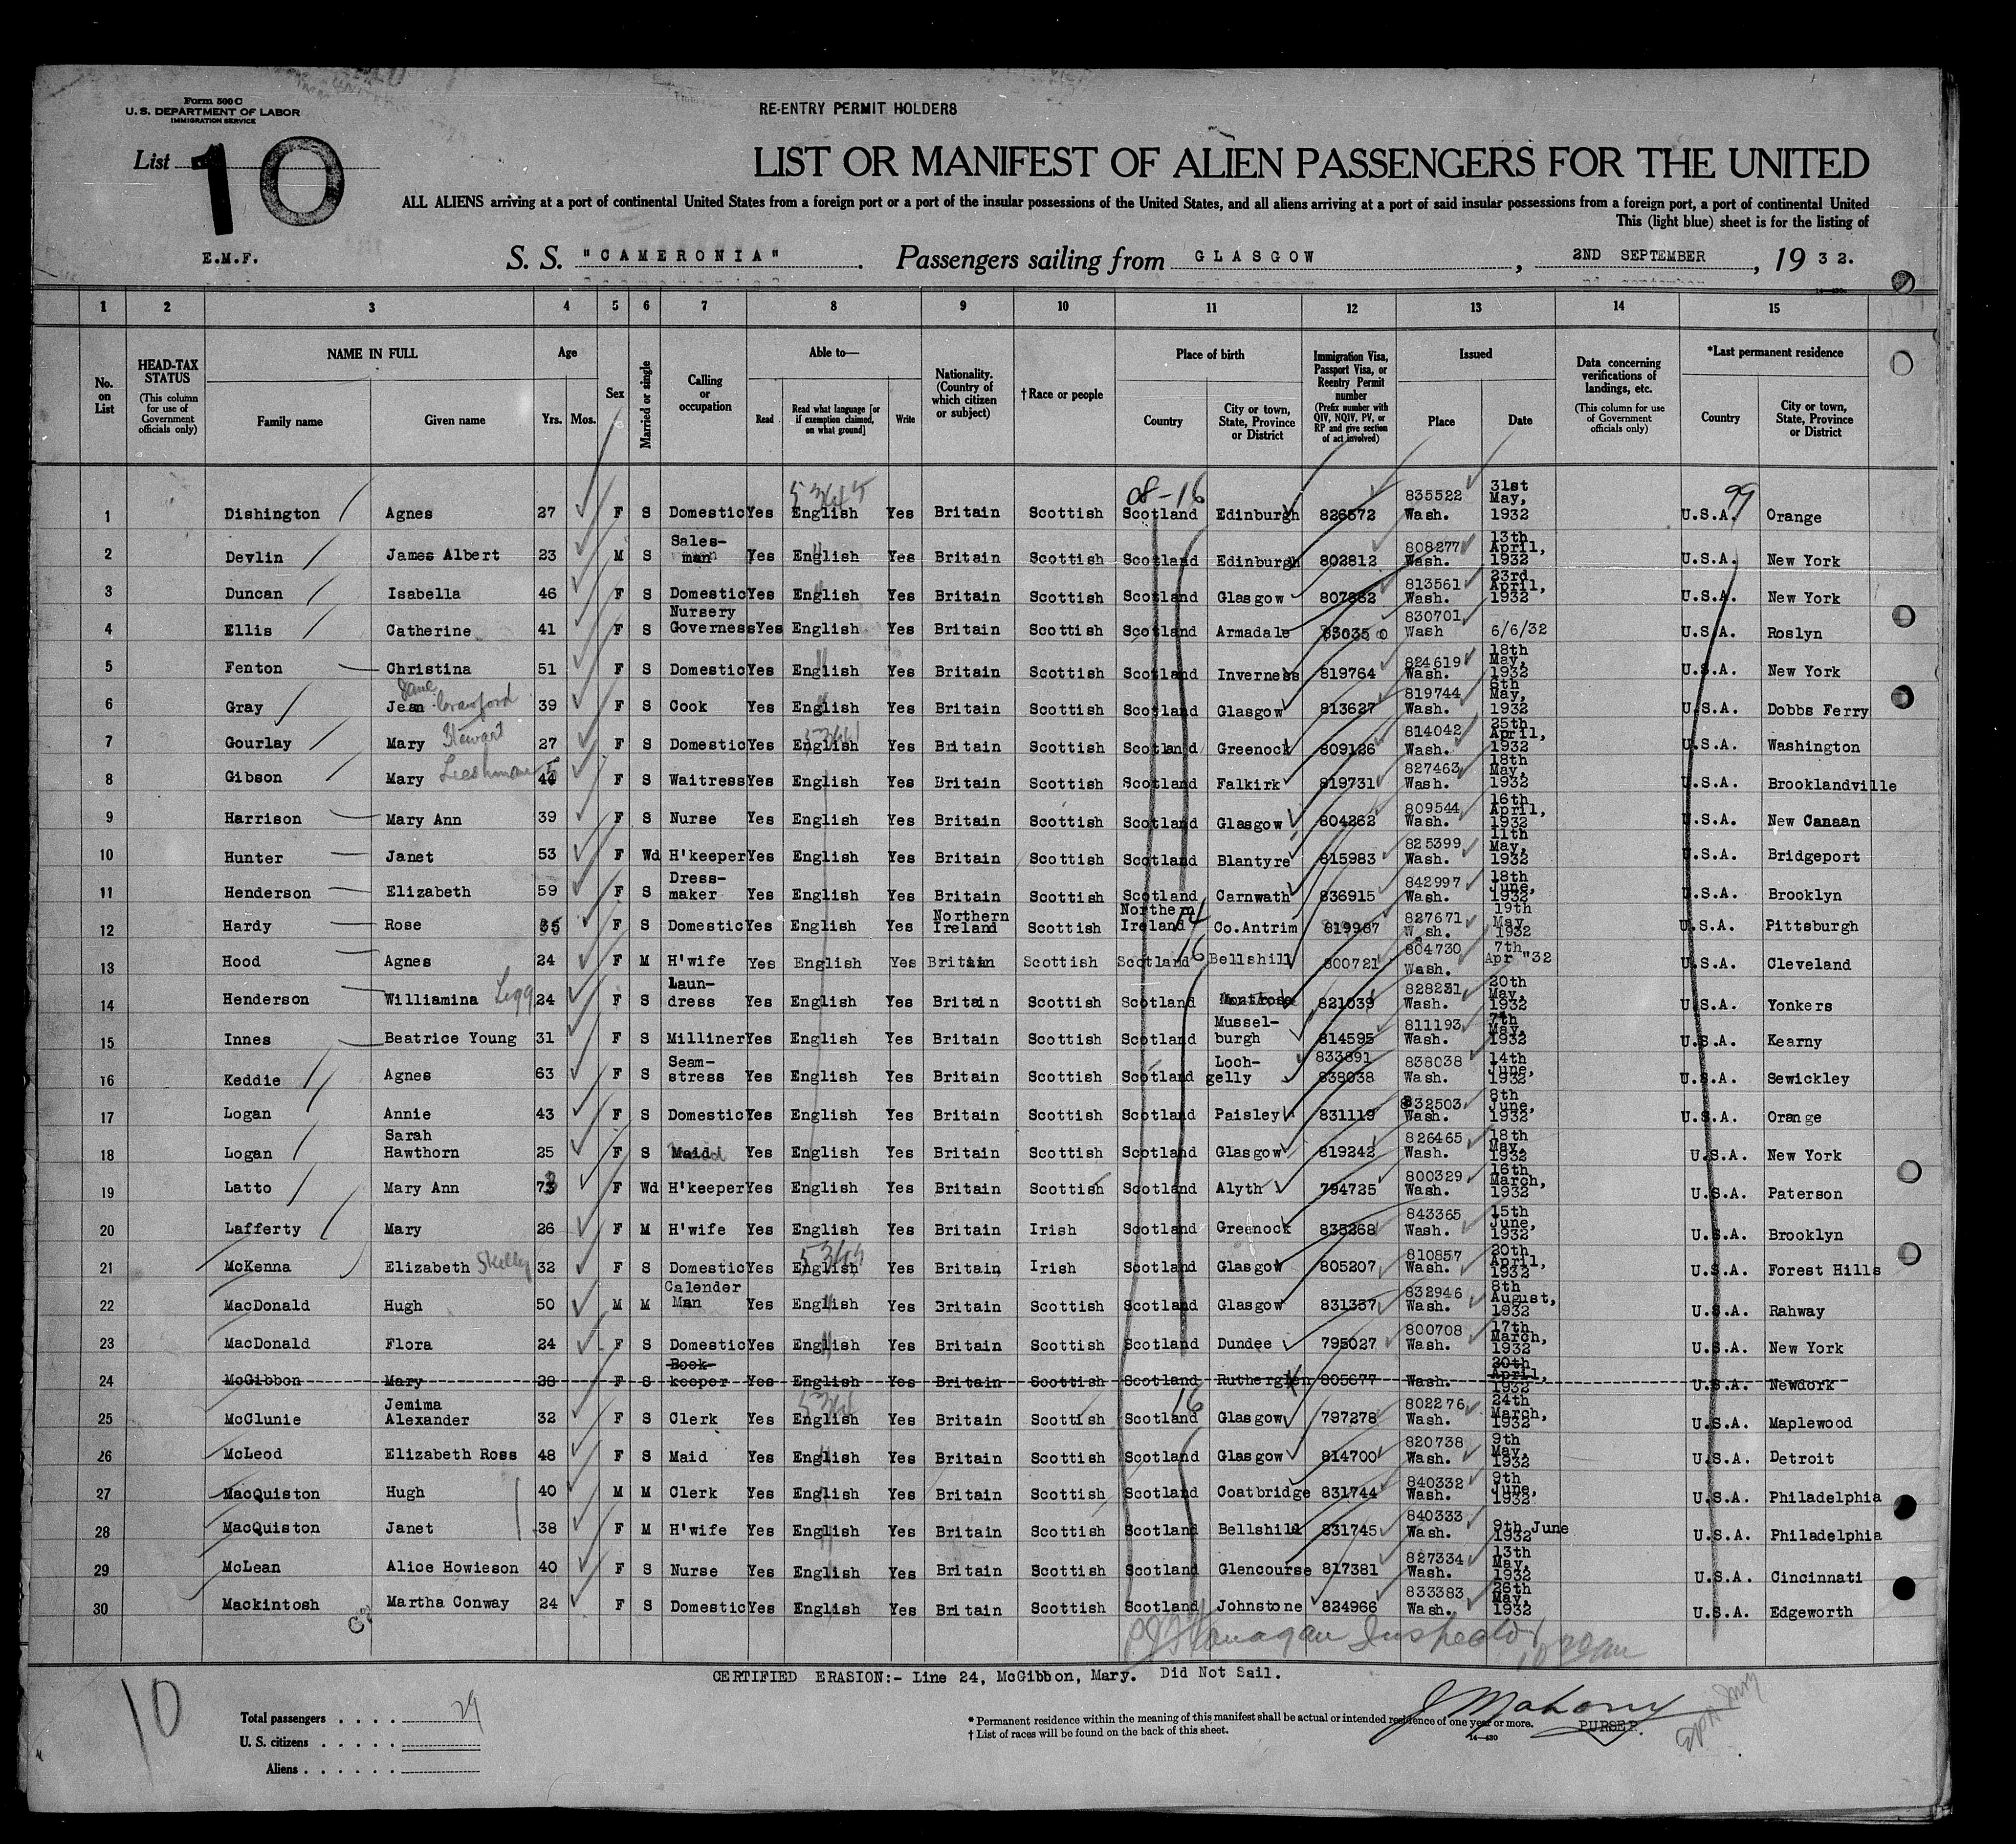 Form 500 C
U. S. DEPARTMENT OF LABOR
IMMIGRATION SERVICE
RE-ENTRY PERMIT HOLDERS
List 10
LIST OR MANIFEST OF ALIEN PASSENGERS FOR THE UNITED
ALL ALIENS arriving at a port of continental United States from a foreign port or a port of the insular possessions of the United States, and all aliens arriving at a port of said insular possessions from a foreign port, a port of continental United
This (light blue) sheet is for the listing of
E.M.F. S. S. "CAMERONIA" . Passengers sailing from GLASGOW , 2ND SEPTEMBER , 19 32.
1 2 3 4 5 6 7 8 9 10 11 12 13 14 15
No. on List
HEAD-TAX STATUS (This column for use of Government officials only)
NAME IN FULL Family name Given name
Age Yrs. Mos.
Sex
Married or single
Calling or occupation
Able to— Read Read what language [or if exemption claimed, on what ground] Write
Nationality. (Country of which citizen or subject)
† Race or people
Place of birth Country City or town, State, Province or District
Immigration Visa, Passport Visa, or Reentry Permit number (Prefix number with QIV, NQIV, PV, or RP and give section of act involved)
Issued Place Date
Data concerning verifications of landings, etc. (This column for use of Government officials only)
*Last permanent residence Country City or town, State, Province or District
5364 08-16 99
1 Dishington Agnes 27 F S Domestic Yes English Yes Britain Scottish Scotland Edinburgh 826572 835522 Wash. 31st May, 1932 U.S.A. Orange
2 Devlin James Albert 23 M S Sales-man Yes English Yes Britain Scottish Scotland Edinburgh 802812 808277 Wash. 13th April, 1932 U.S.A. New York
3 Duncan Isabella 46 F S Domestic Yes English Yes Britain Scottish Scotland Glasgow 813561 Wash. 23rd April, 1932 U.S.A. New York
4 Ellis Catherine 41 F S Nursery Governess Yes English Yes Britain Scottish Scotland Armadale 83035 0 830701 Wash 6/6/32 U.S.A. Roslyn
5 Fenton Christina 51 F S Domestic Yes English Yes Britain Scottish Scotland Inverness 819764 824619 Wash. 18th May, 1932 U.S.A. New York
6 Gray Jean Jane Crawford 39 F S Cook Yes English Yes Britain Scottish Scotland Glasgow 813627 819744 Wash. 6th May, 1932 U.S.A. Dobbs Ferry
7 Gourlay Mary Stewart 27 F S Domestic Yes English Yes Britain Scottish Scotland Greenock 809126 814042 Wash. 25th April, 1932 U.S.A. Washington
8 Gibson Mary 44 F S Waitress Yes English Yes Britain Scottish Scotland Falkirk 819731 827463 Wash. 18th May, 1932 U.S.A. Brooklandville
9 Harrison Mary Ann 39 F S Nurse Yes English Yes Britain Scottish Scotland Glasgow 804262 809544 Wash. 16th April, 1932 U.S.A. New Canaan
10 Hunter Janet 53 F Wd H'keeper Yes English Yes Britain Scottish Scotland Blantyre 815983 825399 Wash. 11th May, 1932 U.S.A. Bridgeport
11 Henderson Elizabeth 59 F S Dress-maker Yes English Yes Britain Scottish Scotland Carnwath 836915 842997 Wash. 18th June, 1932 U.S.A. Brooklyn
12 Hardy Rose 35 F S Domestic Yes English Yes Northern Ireland Scottish Northern Ireland 14 Co.Antrim 819967 827671 Wash. 19th May 1932 U.S.A. Pittsburgh
13 Hood Agnes 24 F M H'wife Yes English Yes Britain Scottish Scotland 16 Bellshill 800721 804730 Wash. 7th Apr "32 U.S.A. Cleveland
14 Henderson Williamina Legg 24 F S Laun-dress Yes English Yes Britain Scottish Scotland Montrose 821039 828231 Wash. 20th May, 1932 U.S.A. Yonkers
15 Innes Beatrice Young 31 F S Milliner Yes English Yes Britain Scottish Scotland Mussel-burgh 814595 811193 Wash. 7th May, 1932 U.S.A. Kearny
16 Keddie Agnes 63 F S Seam-stress Yes English Yes Britain Scottish Scotland Loch-gelly 833891 838038 838038 Wash. 14th June, 1932 U.S.A. Sewickley
17 Logan Annie 43 F S Domestic Yes English Yes Britain Scottish Scotland Paisley 831119 832503 Wash. 8th June, 1932 U.S.A. Orange
18 Logan Sarah Hawthorn 25 F S Maid Yes English Yes Britain Scottish Scotland Glasgow 819242 826465 Wash. 18th May, 1932 U.S.A. New York
19 Latto Mary Ann 73 F Wd H'keeper Yes English Yes Britain Scottish Scotland Alyth 794725 800329 Wash. 16th March, 1932 U.S.A. Paterson
20 Lafferty Mary 26 F M H'wife Yes English Yes Britain Irish Scotland Greenock 835268 843365 Wash. 15th June, 1932 U.S.A. Brooklyn
21 McKenna Elizabeth Skelly 32 F S Domestic Yes English Yes Britain Irish Scotland Glasgow 805207 810857 Wash. 20th April, 1932 U.S.A. Forest Hills
22 MacDonald Hugh 50 M M Calender Man Yes English Yes Britain Scottish Scotland Glasgow 831357 832946 Wash. 8th August, 1932 U.S.A. Rahway
23 MacDonald Flora 24 F S Domestic Yes English Yes Britain Scottish Scotland Dundee 795027 800708 Wash. 17th March, 1932 U.S.A. New York
24 McGibbon Mary 28 F S Book-keeper Yes English Yes Britain Scottish Scotland Rutherglen 805677 Wash. 20th April, 1932 U.S.A. Newdork
25 McClunie Jemima Alexander 32 F S Clerk Yes English Yes Britain Scottish Scotland 16 Glasgow 797278 802276 Wash. 24th March, 1932 U.S.A. Maplewood
26 McLeod Elizabeth Ross 48 F S Maid Yes English Yes Britain Scottish Scotland Glasgow 814700 820738 Wash. 9th May, 1932 U.S.A. Detroit
27 MacQuiston Hugh 40 M M Clerk Yes English Yes Britain Scottish Scotland Coatbridge 831744 840332 Wash. 9th June, 1932 U.S.A. Philadelphia
28 MacQuiston Janet 38 F M H'wife Yes English Yes Britain Scottish Scotland Bellshill 831745 840333 Wash. 9th June 1932 U.S.A. Philadelphia
29 McLean Alice Howieson 40 F S Nurse Yes English Yes Britain Scottish Scotland Glencourse 817381 827334 Wash. 13th May, 1932 U.S.A. Cincinnati
30 Mackintosh Martha Conway 24 F S Domestic Yes English Yes Britain Scottish Scotland Johnstone 824966 833383 Wash. 26th May, 1932 U.S.A. Edgeworth
CERTIFIED ERASION:- Line 24, McGibbon, Mary. Did Not Sail.
10
Total passengers . . . . 29
U. S. citizens . . . . .
Aliens . . . . . .
* Permanent residence within the meaning of this manifest shall be actual or intended residence of one year or more.
† List of races will be found on the back of this sheet.
J Mahony
PURSER.
14—430